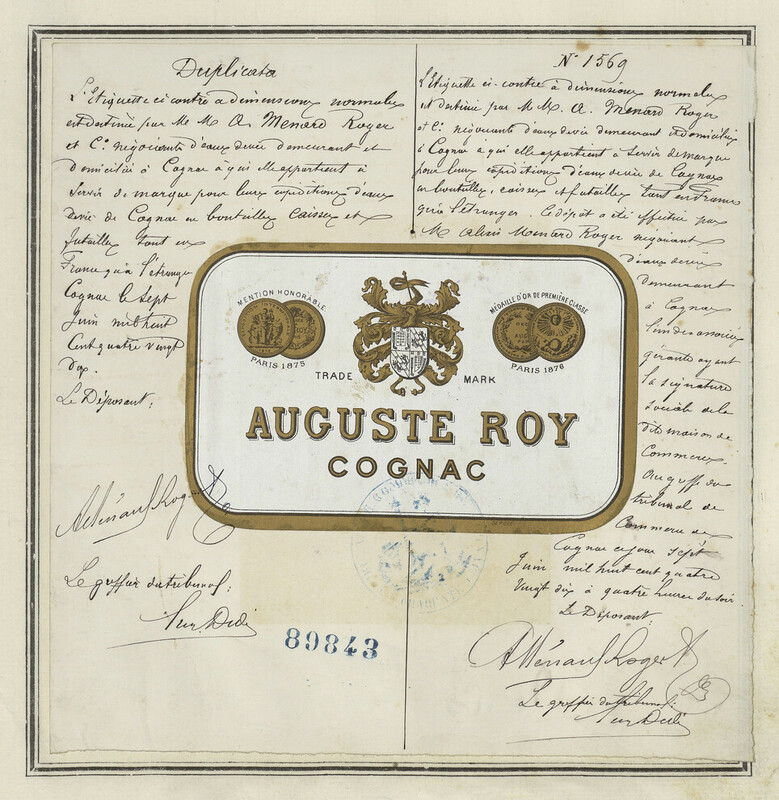 Duplicata
L'Etiquette ci contre a dimensions normales
est destinée par M M A Menard Roger
et Cie négociants d'eaux devie demeurant et
domiciliés à Cognac à qui elle appartient à
Servir de marque pour leurs expéditions d'eaux
devie de Cognac en bouteilles caisses et
futailles tout en
France qu'à l'étranger
Cognac le sept
Juin mil huit
Cent quatre vingt
dix.
Le Déposant:
AMénard Roger
Le greffier du tribunal:
N° 1569
L'Etiquette ci-contre à dimensions normales
est destinée par M M. A. Menard Roger
et Cie négociants d'eaux devie demeurant et domiciliés
à Cognac à qui elle appartient à servir de marque
pour leurs expéditions d'eaux devie de Cognac
en bouteilles, caisses et futailles tant en France
qu'à l'étranger. Le dépôt a été effectué par
M Alexis Menard Roger négociant
d'eaux devie
demeurant
à Cognac
l'un des associés
gérants ayant
la signature
sociale de la
dite maison de
Commerce.
Au greffe du
tribunal de
Commerce de
Cognac ce jour sept
Juin mil huit cent quatre
vingt dix à quatre heures du soir
Le Déposant:
AMénard Roger
Le greffier du tribunal:
MENTION HONORABLE
PARIS 1875
MÉDAILLE D'OR DE PREMIÈRE CLASSE
PARIS 1876
TRADE MARK
AUGUSTE ROY
COGNAC
89843